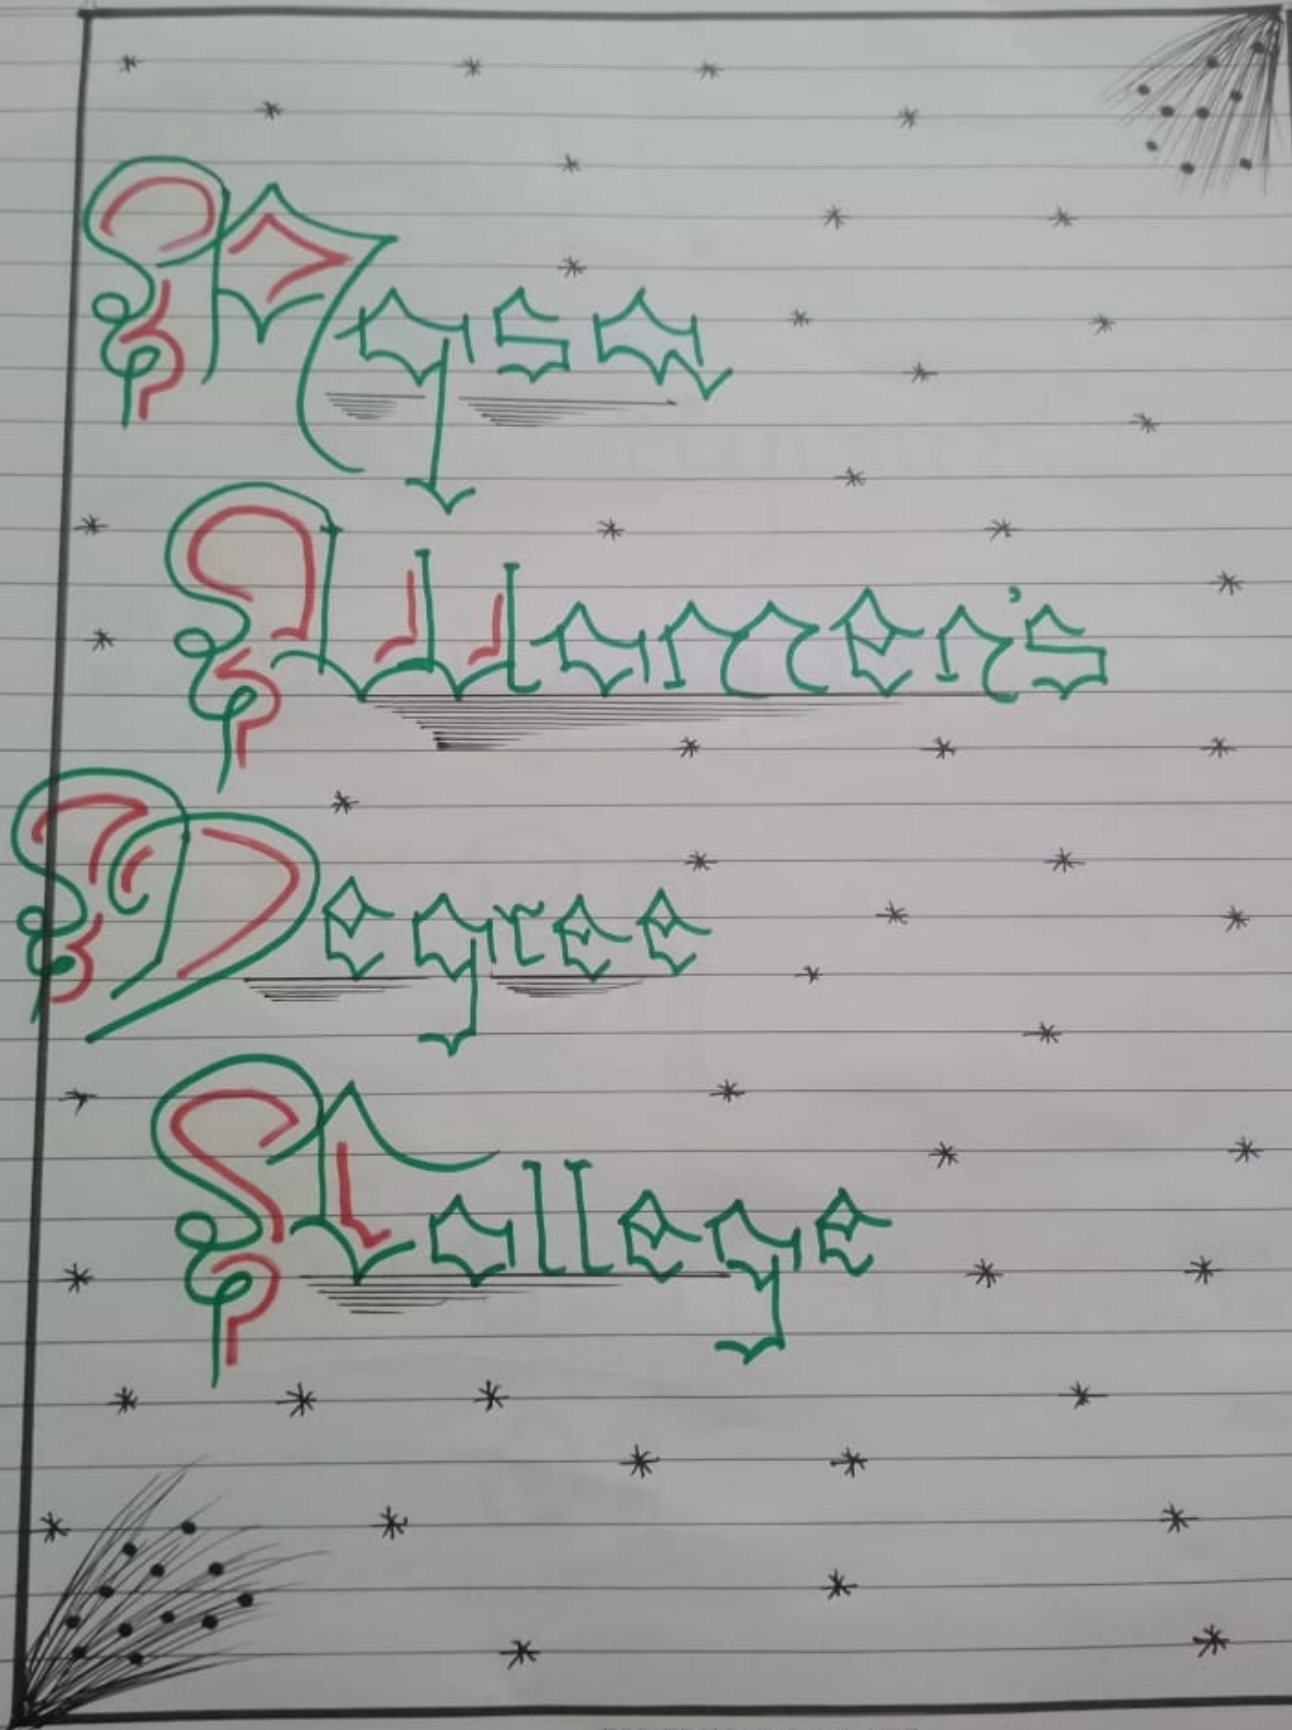 Aqsa
Women's
Degree
College